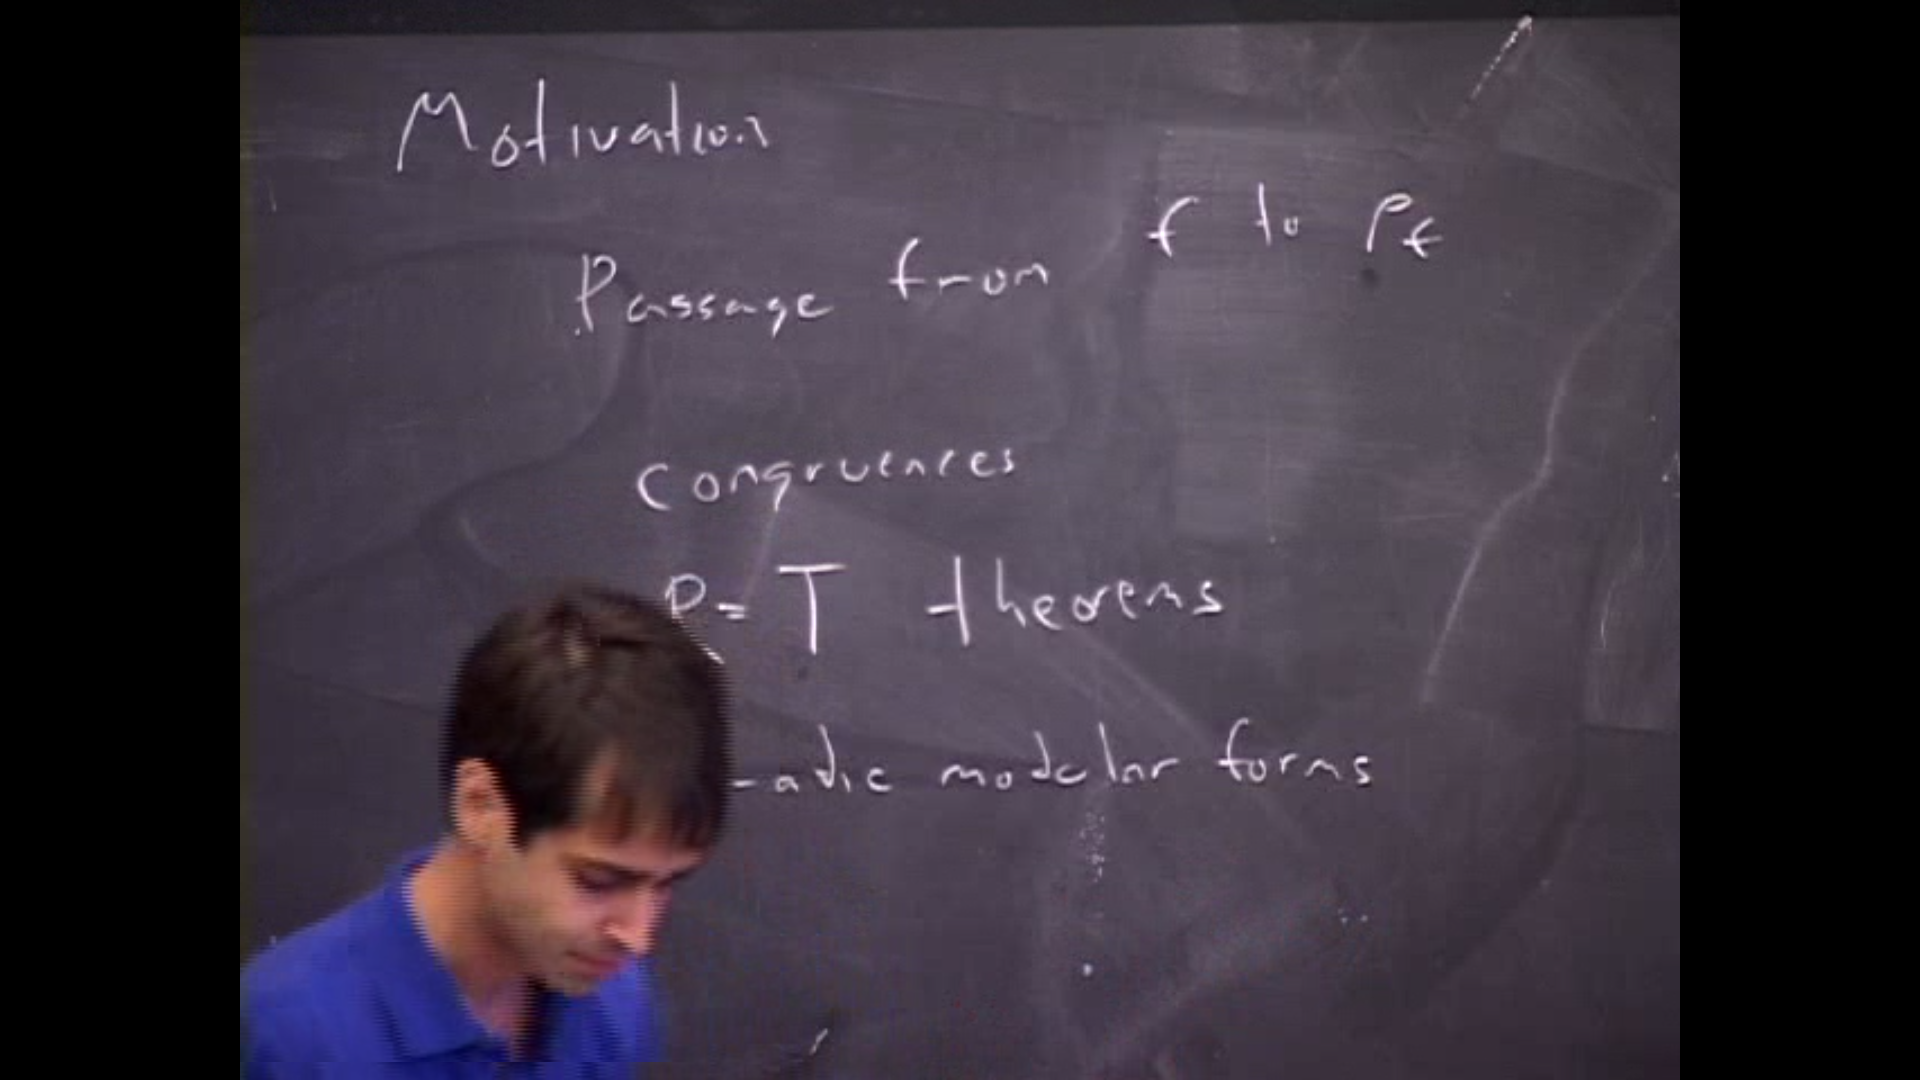 Motivation
Passage from f to ρf
congruences
R=T theorems
-adic modular forms